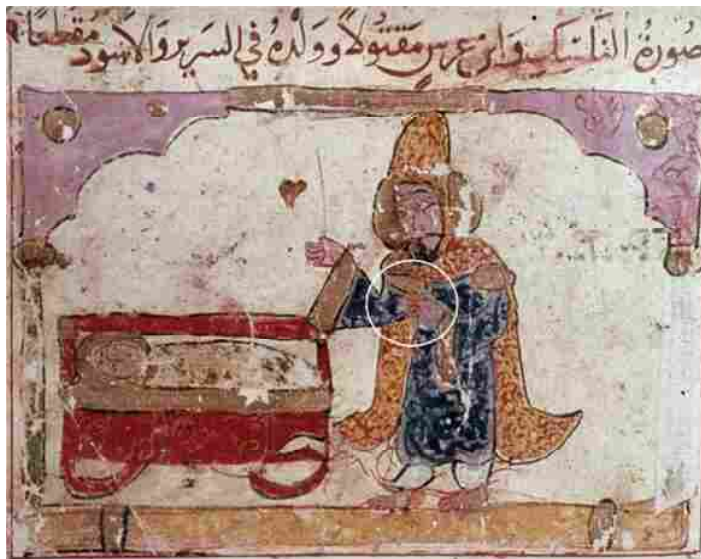 صُورَةُ النَّاسِكِ وَابْنِ عِرْسٍ مَقْتُولاً وَوَلَدُهُ فِي السَّرِيرِ وَالْأَسْوَدِ مُقَطَّعًا